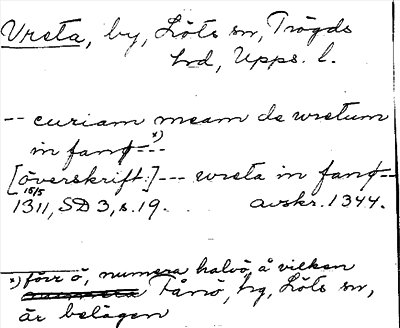 Vreta, by, Löts sn, Trögds
hd, Upps. l.
-- curiam meam de wretum
in fanö --- x)
[överskrift:] --- wreta in fanö --
15/5
1311, SD 3, s. 19. avskr. 1344.
x) förr ö, numera halvö, å vilken
Fånö, hg, Löts sn,
är belägen